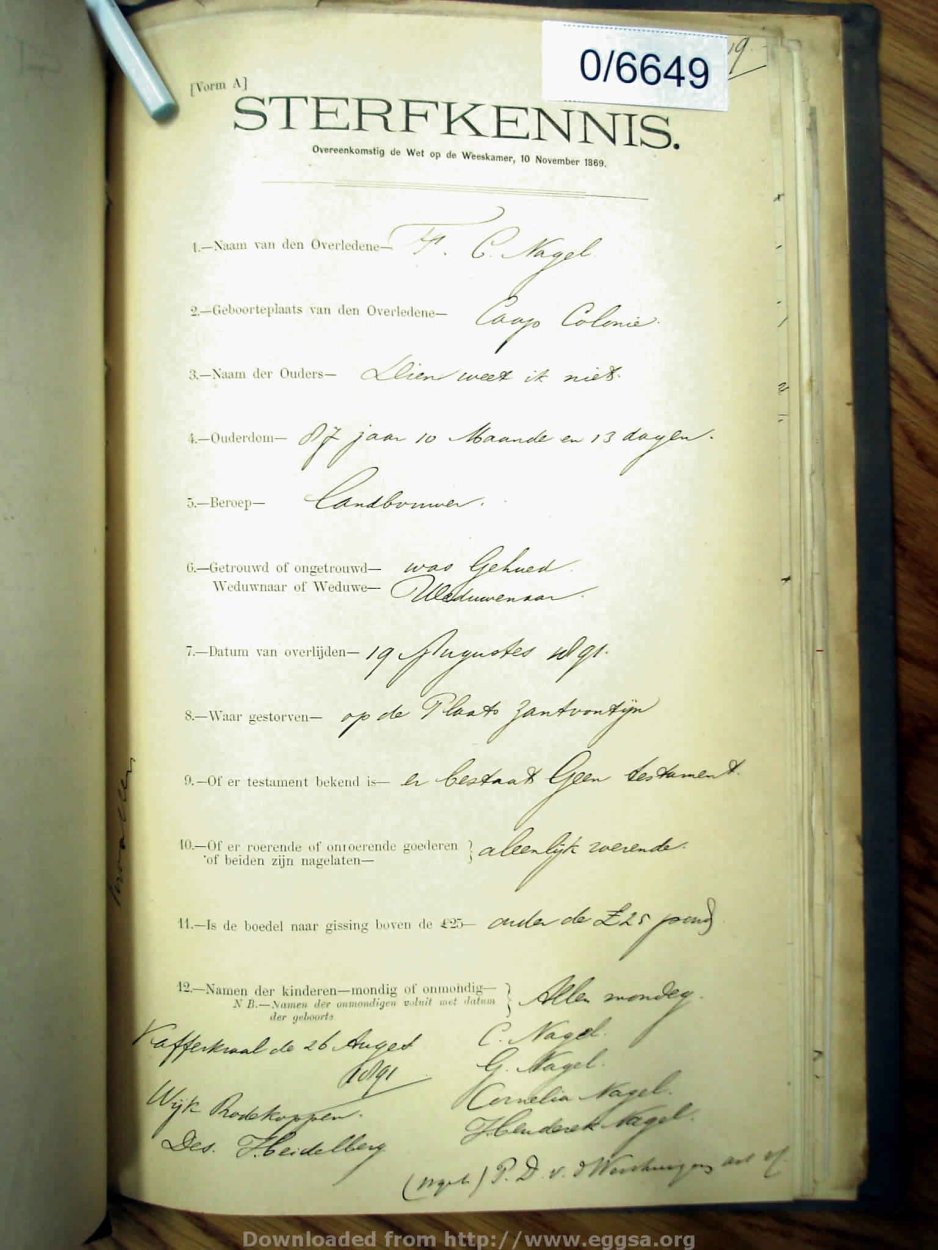 0/6649
19
[Vorm A]
STERFKENNIS.
Overeenkomstig de Wet op de Weeskamer, 10 November 1869.
1.—Naam van den Overledene— F. C. Nagel.
2.—Geboorteplaats van den Overledene— Caap Colonie.
3.—Naam der Ouders— Dien weet ik niet.
4.—Ouderdom— 87 jaar 10 Maande en 13 dagen.
5.—Beroep— Landbouwer.
6.—Getrouwd of ongetrouwd— was Gehued.
Weduwnaar of Weduwe— Weduwenaar.
7.—Datum van overlijden— 19 Augustes 1891.
8.—Waar gestorven— op de Plaats Zantvontijn
9.—Of er testament bekend is— er bestaat Geen testament.
10.—Of er roerende of onroerende goederen } aleenlijk roerende.
of beiden zijn nagelaten—
11.—Is de boedel naar gissing boven de £25— onder de £25 pond
12.—Namen der kinderen—mondig of onmondig— } Allen mondeg.
N B.—Namen der onmondigen voluit met datum
der geboorte
Kafferkraal de 26 Auges C. Nagel.
1891 G. Nagel.
Wijk Roodekoppen. Cornelia Nagel.
Des. Heidelberg Henderek Nagel.
P. D. v. d
Downloaded from http://www.eggsa.org